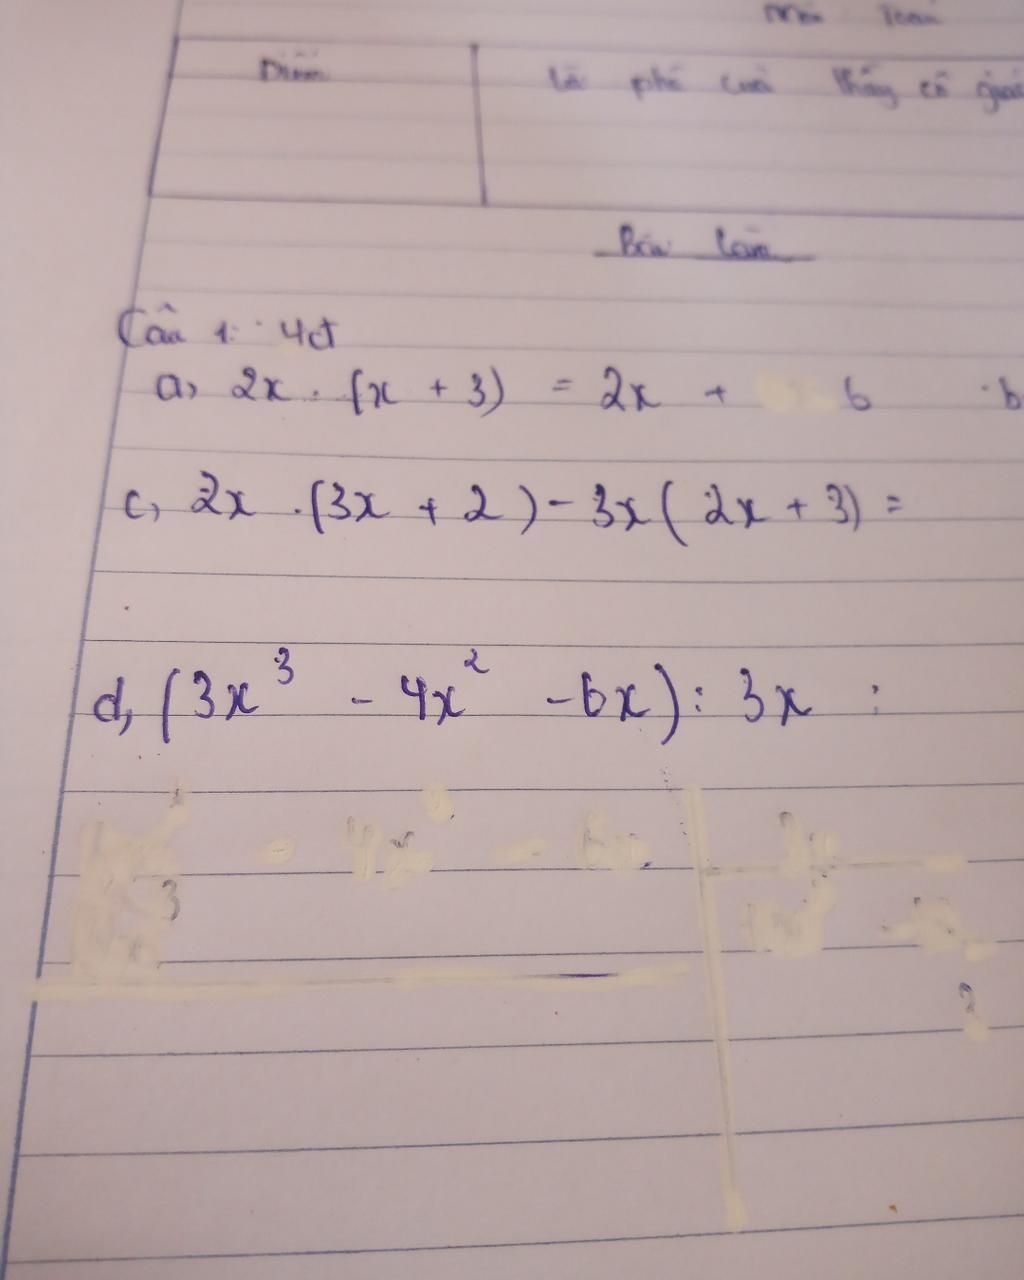 Môn Toán
Điểm
Lời phê của thầy cô giáo
Bài làm
Câu 1: 4đ
a, 2x . (x + 3) = 2x + 6 b
c, 2x . (3x + 2) - 3x ( 2x + 3) =
d, (3x³ - 4x² - 6x) : 3x :